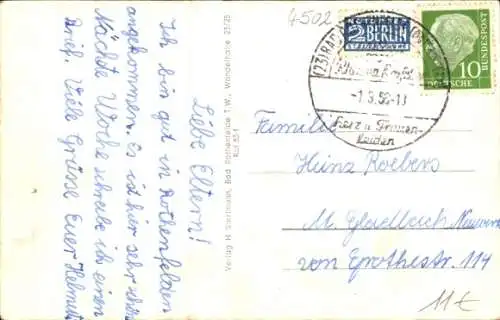 Liebe Eltern!
Ich bin gut in Rothenfelden
angekommen. Es ist hier sehr schön
Nächste Woche schreibe ich einen
Brief. Viele Grüsse Euer Helmut
Verlag H. Bad Rothenfelde T.W., Wanderhalle 23/25
Ruf 551
4-502
NOTOPFER
2 BERLIN
STEUERMARKE
DEUTSCHE BUNDESPOST
10
(23) BAD
-1.3.56-13
Herz u Frauen-
leiden
Familie
Heinz Roebers
M. Gladbach
von Grothestr. 114
11€